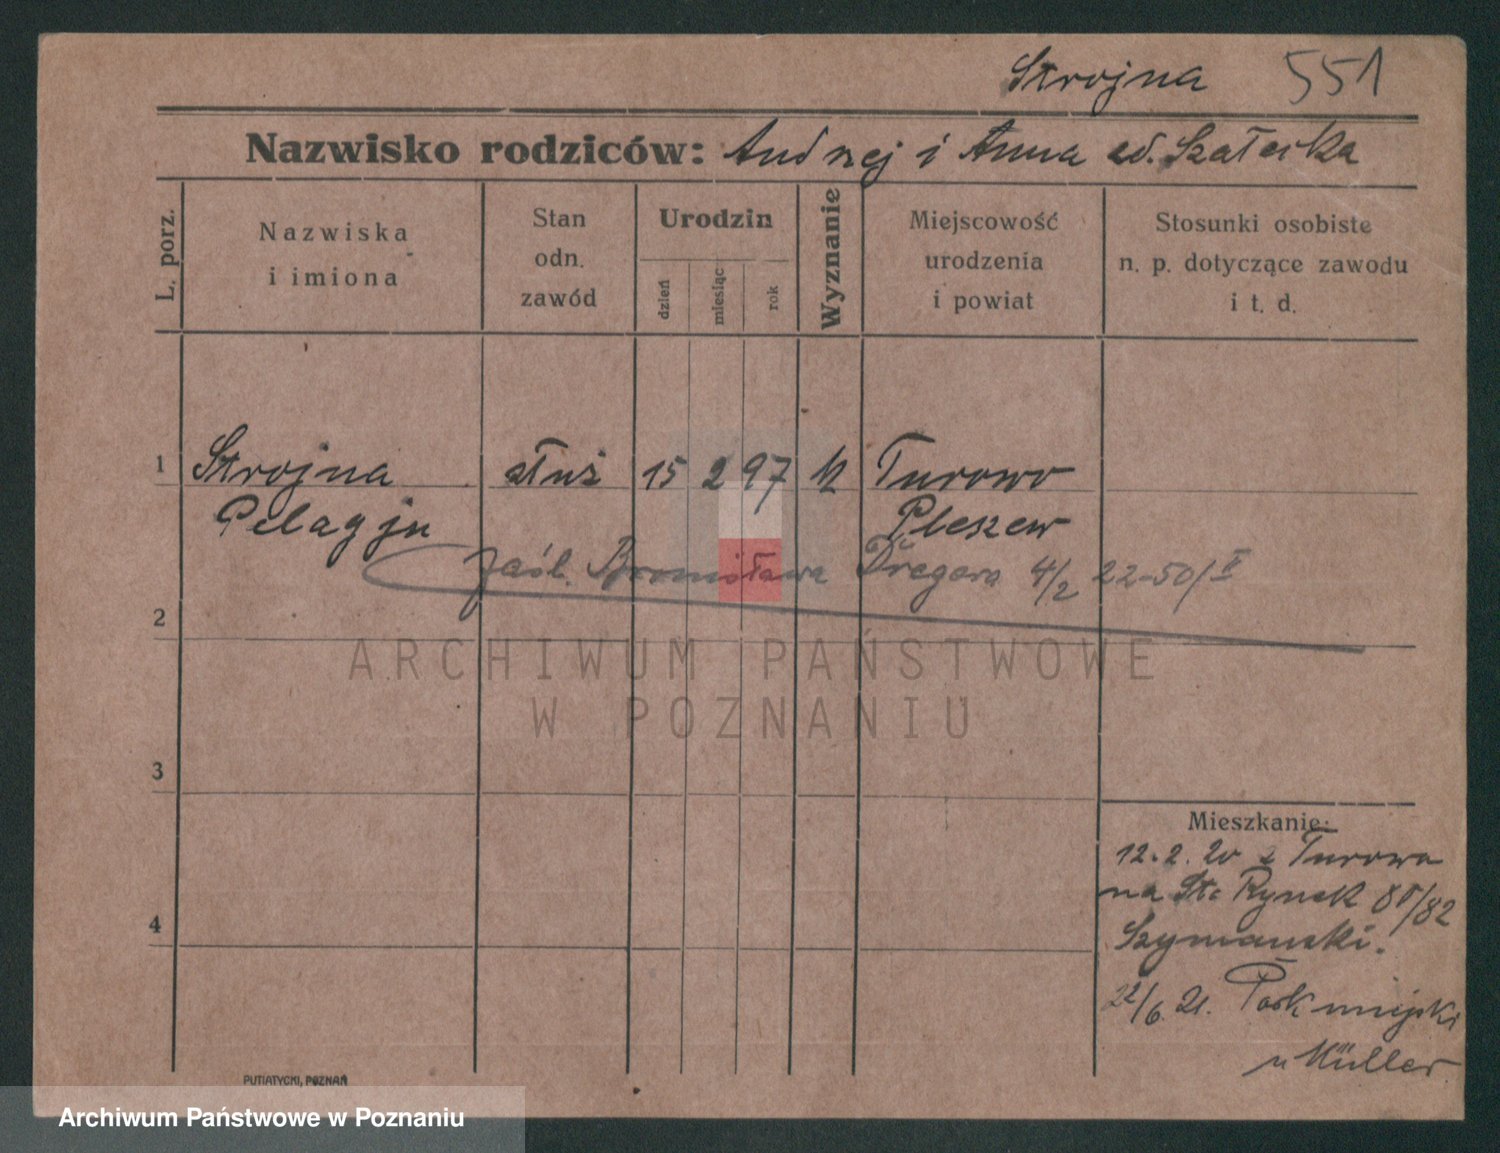 Strojna 551
Nazwisko rodziców: Andrzej i Anna
L. porz.
Nazwiska i imiona
Stan odn. zawód
Urodzin
dzień miesiąc rok
Wyznanie
Miejscowość urodzenia i powiat
Stosunki osobiste n. p. dotyczące zawodu i t. d.
1 Strojna służ 15 2 97 k Turowo
Pelagja Pleszew
zaśl. Bronisława Dregera 4/2 22-50/II
2
3
4
Mieszkanie:
12.2.20 z Turowa
na St. Rynek 80/82
Szymanski.
22/6. 21. Park miejski
u Müller
PUTIATYCKI, POZNAŃ
ARCHIWUM PAŃSTWOWE
W POZNANIU
Archiwum Państwowe w Poznaniu